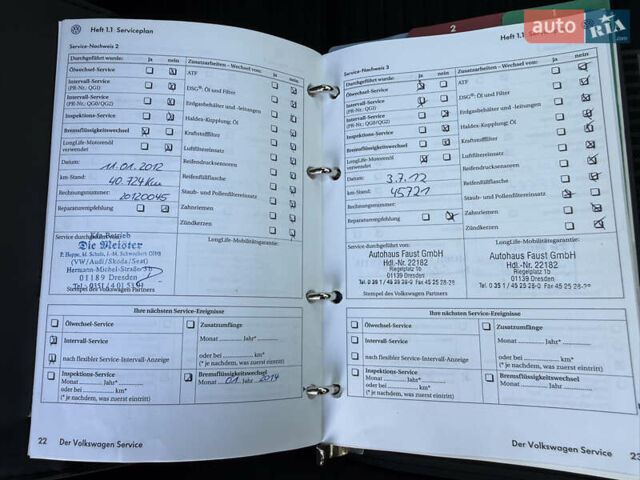 Heft 1.1 Serviceplan
Service-Nachweis 2
Durchgeführt wurde: ja nein
Ölwechsel-Service
Intervall-Service
(PR-Nr.: QG1)
Intervall-Service
(PR-Nr.: QG0/QG2)
Inspektions-Service
Bremsflüssigkeitswechsel
LongLife-Motorenöl
verwendet
Datum: 11.01.2012
km-Stand: 40.724 Km
Rechnungsnummer: 20120045
Reparaturempfehlung
Zusatzarbeiten - Wechsel von: ja nein
ATF
DSG®: Öl und Filter
Erdgasbehälter und -leitungen
Haldex-Kupplung: Öl
Kraftstofffilter
Luftfiltereinsatz
Reifendrucksensoren
Reifenfüllflasche
Staub- und Pollenfiltereinsatz
Zahnriemen
Zündkerzen
Service durchgeführt von:
Kfz-Betrieb
Die Meister
P. Hoppe, M. Schulz, J.-M. Schwerdtner GbR
(VW/Audi/Skoda/Seat)
Hermann-Michel-Straße
01189 Dresden
Stempel des Volkswagen Partners
LongLife-Mobilitätsgarantie:
Ihre nächsten Service-Ereignisse
Ölwechsel-Service
Intervall-Service
nach flexibler Service-Intervall-Anzeige
Inspektions-Service
Monat ............ Jahr*............
oder bei ............ km*
(* je nachdem, was zuerst eintritt)
Zusatzumfänge
Monat ............ Jahr*............
oder bei ............ km*
(* je nachdem, was zuerst eintritt)
Bremsflüssigkeitswechsel
Monat 01. Jahr 2014
22 Der Volkswagen Service
2
Heft 1.1 Serviceplan
Service-Nachweis 3
Durchgeführt wurde: ja nein
Ölwechsel-Service
Intervall-Service
(PR-Nr.: QG1)
Intervall-Service
(PR-Nr.: QG0/QG2)
Inspektions-Service
Bremsflüssigkeitswechsel
LongLife-Motorenöl
verwendet
Datum: 3.7.12
km-Stand: 45721
Rechnungsnummer:
Reparaturempfehlung
Zusatzarbeiten - Wechsel von: ja nein
ATF
DSG®: Öl und Filter
Erdgasbehälter und -leitungen
Haldex-Kupplung: Öl
Kraftstofffilter
Luftfiltereinsatz
Reifendrucksensoren
Reifenfüllflasche
Staub- und Pollenfiltereinsatz
Zahnriemen
Zündkerzen
Service durchgeführt von:
Autohaus Faust GmbH
Hdl.-Nr. 22182
Riegelplatz 1b
01139 Dresden
Tel. 0 35 1 / 45 25 28-0 Fax 45 25 28-28
Stempel des Volkswagen Partners
LongLife-Mobilitätsgarantie:
Autohaus Faust GmbH
Hdl.-Nr. 22182
Riegelplatz 1b
01139 Dresden
Tel. 0 35 1 / 45 25 28-0 Fax 45 25 28-28
Ihre nächsten Service-Ereignisse
Ölwechsel-Service
Intervall-Service
nach flexibler Service-Intervall-Anzeige
Inspektions-Service
Monat ............ Jahr*............
oder bei ............ km*
(* je nachdem, was zuerst eintritt)
Zusatzumfänge
Monat ............ Jahr*............
oder bei ............ km*
(* je nachdem, was zuerst eintritt)
Bremsflüssigkeitswechsel
Monat ............ Jahr ............
Der Volkswagen Service 23
auto RIA.com